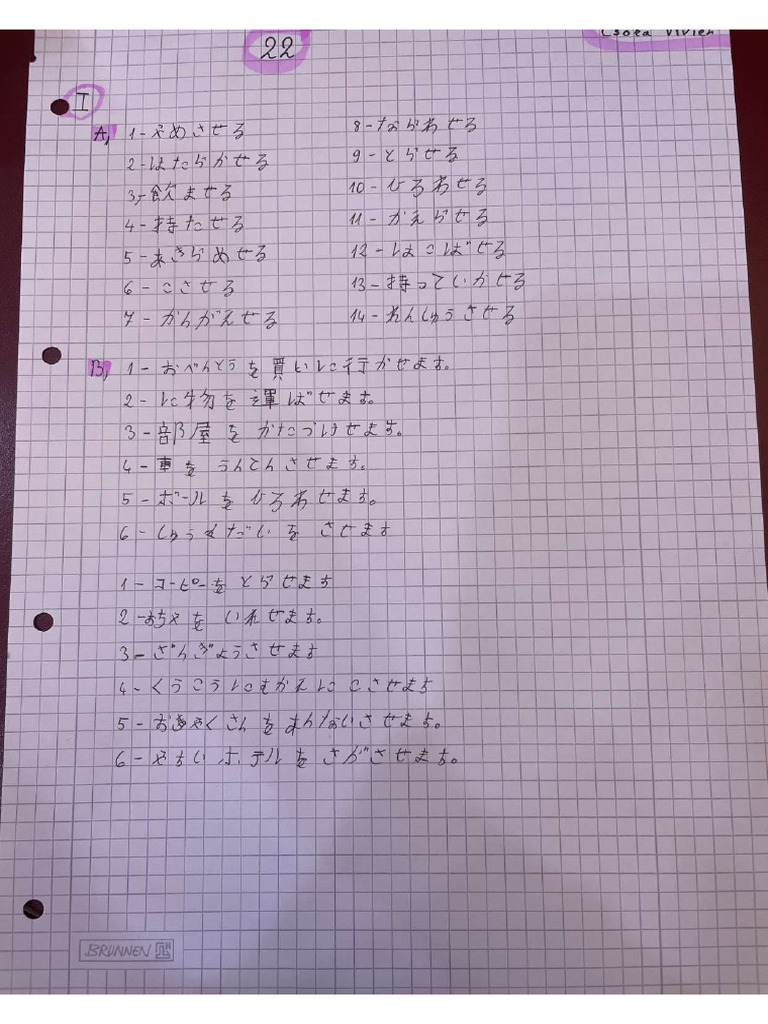 Csoka Vivien
22
I
A, 1 - やめさせる
2 - はたらかせる
3, - 飲ませる
4 - 持たせる
5 - あきらめせる
6 - こさせる
7 - かんがえせる
8 - ならわせる
9 - とらせる
10 - ひろわせる
11 - かえらせる
12 - はこばせる
13 - 持っていかせる
14 - れんしゅうさせる
B, 1 - おべんとうを買いに行かせます。
2 - に物を運ばせます。
3 - 部屋をかたづけせます。
4 - 車をうんてんさせます。
5 - ボールをひろわせます。
6 - しゅくだいをさせます
1 - コーピーをとらせます
2 - おちゃをいれせます。
3 - ざんぎょうさせます
4 - くうこうにむかえにこさせます
5 - おきゃくさんをあんないさせます。
6 - やすいホテルをさがさせます。
BRUNNEN